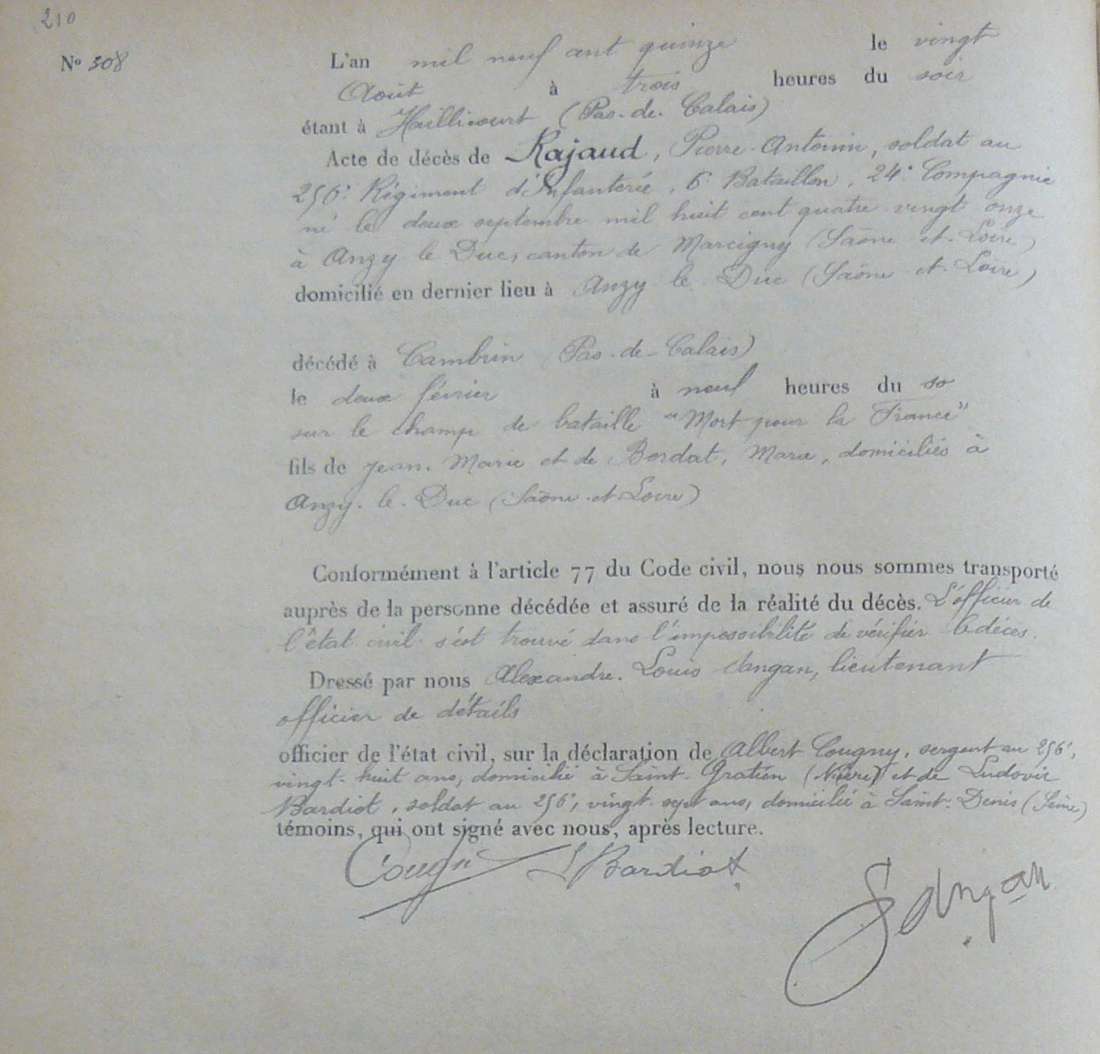 210
N° 308
L'an mil neuf cent quinze le vingt
Août à trois heures du soir
étant à Haillicourt (Pas-de-Calais)
Acte de décès de Rajaud, Pierre-Antonin, soldat au
256e Régiment d'Infanterie, 6e Bataillon, 24e Compagnie
né le deux septembre mil huit cent quatre vingt onze
à Anzy le Duc, canton de Marcigny (Saône-et-Loire)
domicilié en dernier lieu à Anzy le Duc (Saône-et-Loire)
décédé à Cambrin Pas-de-Calais)
le deux février à neuf heures du so
sur le champ de bataille "Mort pour la France"
fils de Jean-Marie et de Bordat, Marie, domiciliés à
Anzy-le-Duc (Saône-et-Loire)
Conformément à l'article 77 du Code civil, nous nous sommes transporté
auprès de la personne décédée et assuré de la réalité du décès. L'officier de
l'état civil s'est trouvé dans l'impossibilité de vérifier le décès.
Dressé par nous Alexandre-Louis Sangan, lieutenant
officier de détails
officier de l'état civil, sur la déclaration de Albert Cougny, sergent au 256e,
vingt-huit ans, domicilié à Saint-Gratien (Nièvre) et de Ludovic
Bardiot, soldat au 256e, vingt sept ans, domicilié à Saint-Denis (Seine)
témoins, qui ont signé avec nous, après lecture.
Cougny L Bardiot
Sangan